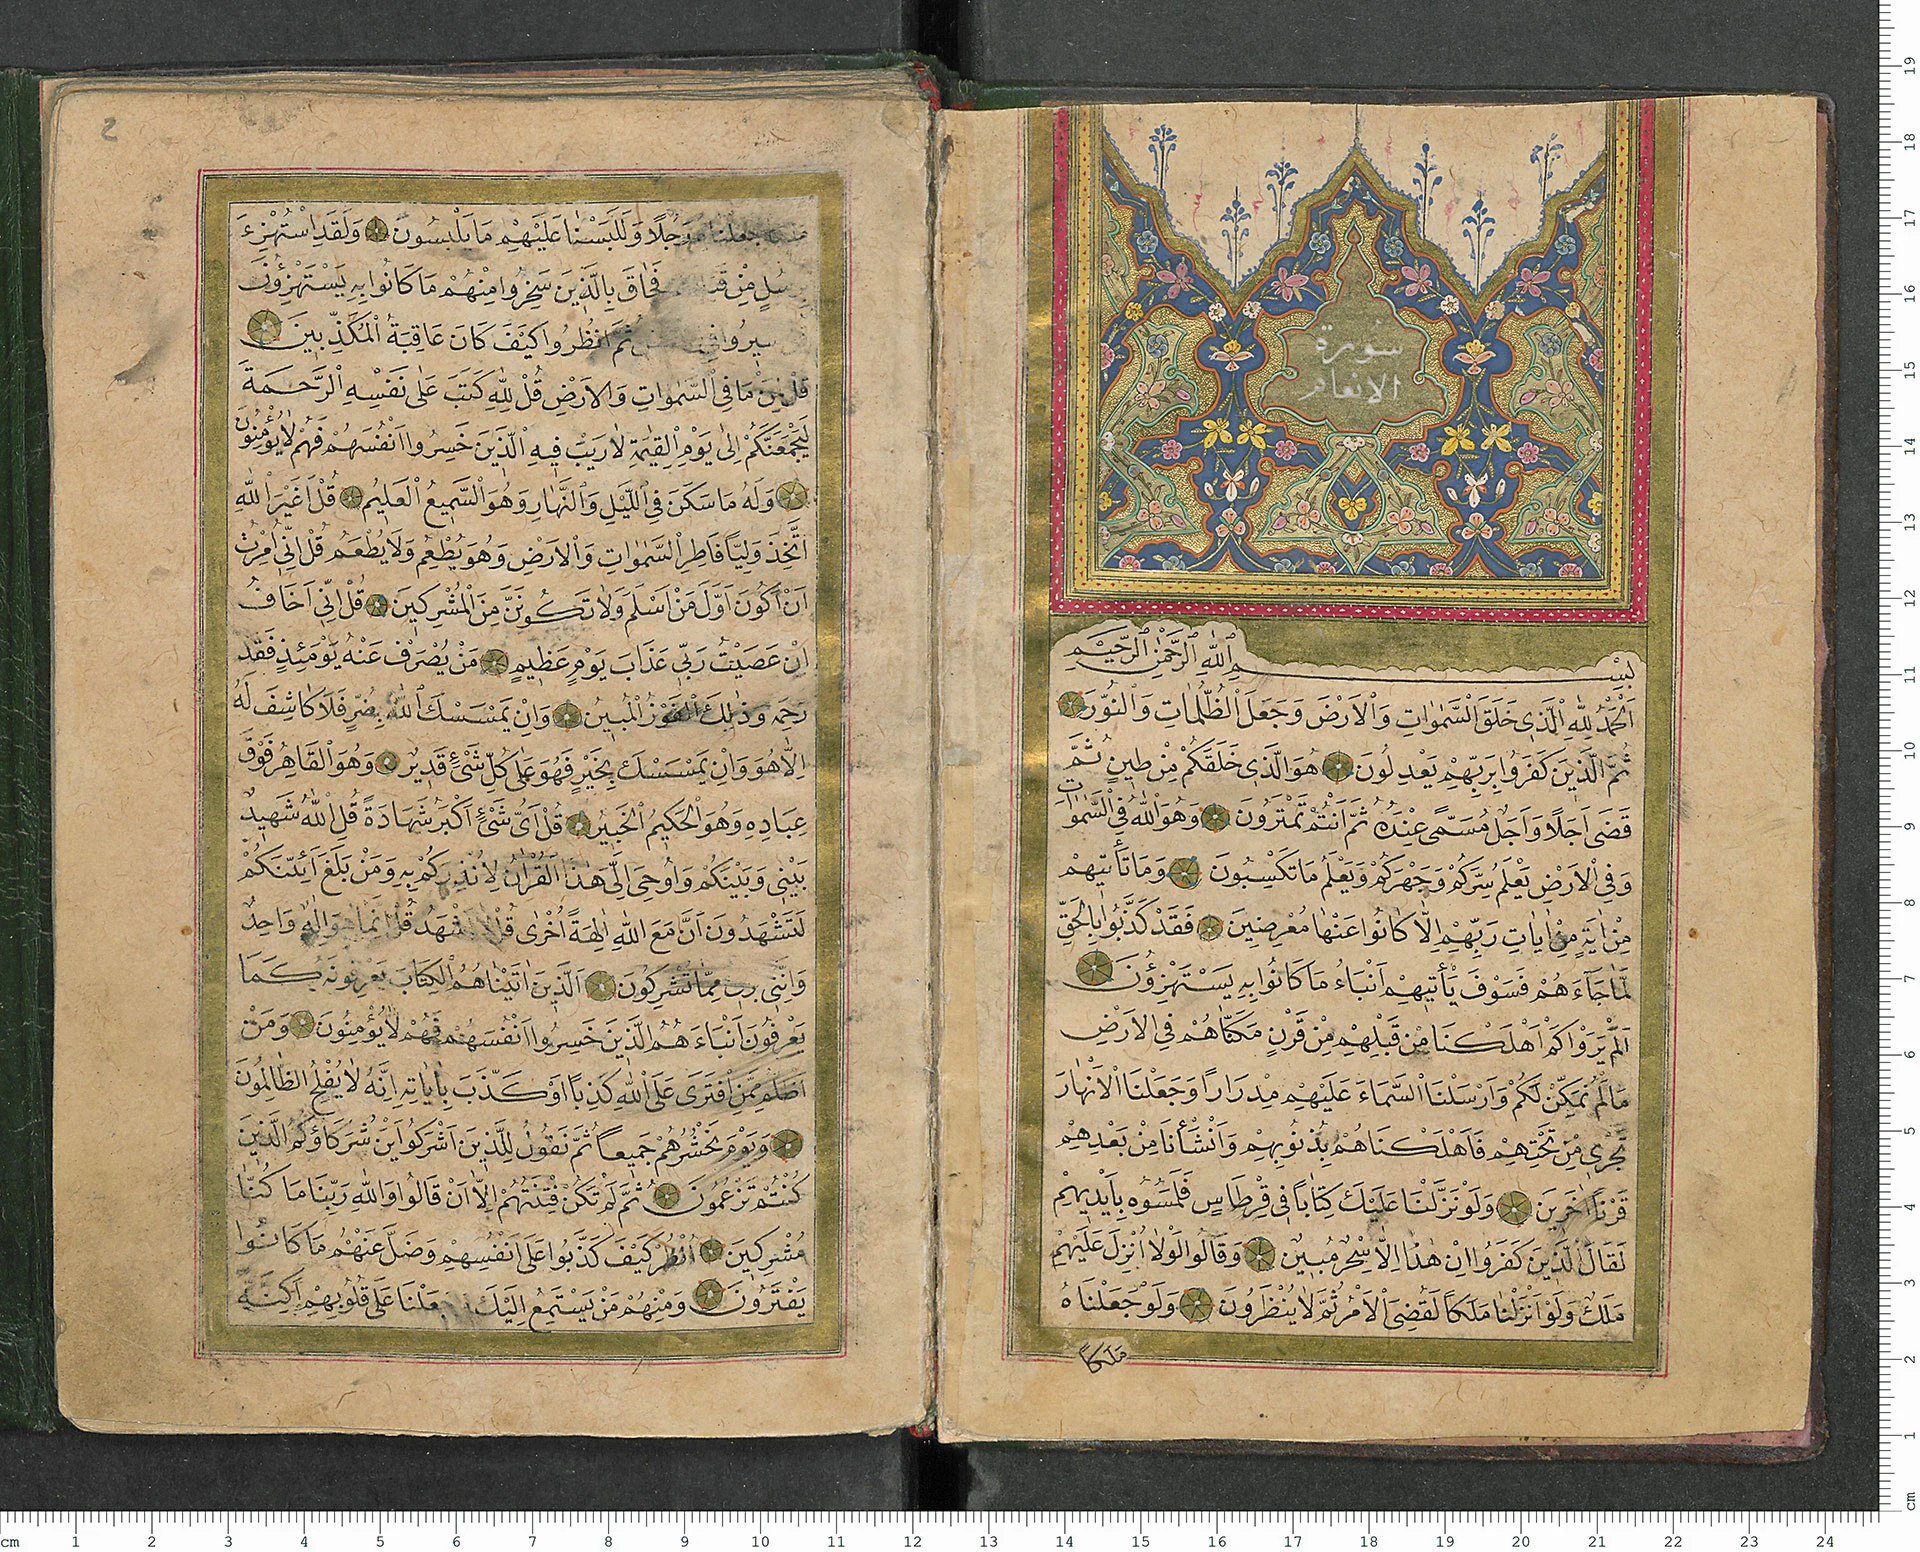 سورة
الانعام
بِسْمِ اللّٰهِ الرَّحْمٰنِ الرَّحِيْمِ
اَلْحَمْدُ لِلّٰهِ الَّذٖى خَلَقَ السَّمٰوَاتِ وَالْاَرْضَ وَجَعَلَ الظُّلُمَاتِ وَالنُّورَ
ثُمَّ الَّذٖينَ كَفَرُوا بِرَبِّهِمْ يَعْدِلُونَ هُوَ الَّذٖى خَلَقَكُمْ مِنْ طٖينٍ ثُمَّ
قَضٰى اَجَلًا وَاَجَلٌ مُسَمًّى عِنْدَهُ ثُمَّ اَنْتُمْ تَمْتَرُونَ وَهُوَ اللّٰهُ فِى السَّمٰوَاتِ
وَفِى الْاَرْضِ يَعْلَمُ سِرَّكُمْ وَجَهْرَكُمْ وَيَعْلَمُ مَا تَكْسِبُونَ وَمَا تَأْتٖيهِمْ
مِنْ اٰيَةٍ مِنْ اٰيَاتِ رَبِّهِمْ اِلَّا كَانُوا عَنْهَا مُعْرِضٖينَ فَقَدْ كَذَّبُوا بِالْحَقِّ
لَمَّا جَاءَهُمْ فَسَوْفَ يَأْتٖيهِمْ اَنْبَاءُ مَا كَانُوا بِهٖ يَسْتَهْزِؤُنَ
اَلَمْ يَرَوْا كَمْ اَهْلَكْنَا مِنْ قَبْلِهِمْ مِنْ قَرْنٍ مَكَّنَّاهُمْ فِى الْاَرْضِ
مَا لَمْ نُمَكِّنْ لَكُمْ وَاَرْسَلْنَا السَّمَاءَ عَلَيْهِمْ مِدْرَارًا وَجَعَلْنَا الْاَنْهَارَ
تَجْرٖى مِنْ تَحْتِهِمْ فَاَهْلَكْنَاهُمْ بِذُنُوبِهِمْ وَاَنْشَأْنَا مِنْ بَعْدِهِمْ
قَرْنًا اٰخَرٖينَ وَلَوْ نَزَّلْنَا عَلَيْكَ كِتَابًا فٖى قِرْطَاسٍ فَلَمَسُوهُ بِاَيْدٖيهِمْ
لَقَالَ الَّذٖينَ كَفَرُوا اِنْ هٰذَا اِلَّا سِحْرٌ مُبٖينٌ وَقَالُوا لَوْلَا اُنْزِلَ عَلَيْهِ
مَلَكٌ وَلَوْ اَنْزَلْنَا مَلَكًا لَقُضِىَ الْاَمْرُ ثُمَّ لَا يُنْظَرُونَ وَلَوْ جَعَلْنَاهُ
مَلَكًا
جَعَلْنَاهُ رَجُلًا وَلَلَبَسْنَا عَلَيْهِمْ مَا يَلْبِسُونَ وَلَقَدِ اسْتُهْزِءَ
بِرُسُلٍ مِنْ فَحَاقَ بِالَّذٖينَ سَخِرُوا مِنْهُمْ مَا كَانُوا بِهٖ يَسْتَهْزِؤُنَ
سٖيرُوا فِى ثُمَّ انْظُرُوا كَيْفَ كَانَ عَاقِبَةُ الْمُكَذِّبٖينَ
قُلْ لِمَنْ مَا فِى السَّمٰوَاتِ وَالْاَرْضِ قُلْ لِلّٰهِ كَتَبَ عَلٰى نَفْسِهِ الرَّحْمَةَ
لَيَجْمَعَنَّكُمْ اِلٰى يَوْمِ الْقِيٰمَةِ لَا رَيْبَ فٖيهِ الَّذٖينَ خَسِرُوا اَنْفُسَهُمْ فَهُمْ لَا يُؤْمِنُونَ
وَلَهُ مَا سَكَنَ فِى اللَّيْلِ وَالنَّهَارِ وَهُوَ السَّمٖيعُ الْعَلٖيمُ قُلْ اَغَيْرَ اللّٰهِ
اَتَّخِذُ وَلِيًّا فَاطِرِ السَّمٰوَاتِ وَالْاَرْضِ وَهُوَ يُطْعِمُ وَلَا يُطْعَمُ قُلْ اِنّٖى اُمِرْتُ
اَنْ اَكُونَ اَوَّلَ مَنْ اَسْلَمَ وَلَا تَكُونَنَّ مِنَ الْمُشْرِكٖينَ قُلْ اِنّٖى اَخَافُ
اِنْ عَصَيْتُ رَبّٖى عَذَابَ يَوْمٍ عَظٖيمٍ مَنْ يُصْرَفْ عَنْهُ يَوْمَئِذٍ فَقَدْ
رَحِمَهُ وَذٰلِكَ الْفَوْزُ الْمُبٖينُ وَاِنْ يَمْسَسْكَ اللّٰهُ بِضُرٍّ فَلَا كَاشِفَ لَهُ
اِلَّا هُوَ وَاِنْ يَمْسَسْكَ بِخَيْرٍ فَهُوَ عَلٰى كُلِّ شَىْءٍ قَدٖيرٌ وَهُوَ الْقَاهِرُ فَوْقَ
عِبَادِهٖ وَهُوَ الْحَكٖيمُ الْخَبٖيرُ قُلْ اَىُّ شَىْءٍ اَكْبَرُ شَهَادَةً قُلِ اللّٰهُ شَهٖيدٌ
بَيْنٖى وَبَيْنَكُمْ وَاُوحِىَ اِلَىَّ هٰذَا الْقُرْاٰنُ لِاُنْذِرَكُمْ بِهٖ وَمَنْ بَلَغَ اَئِنَّكُمْ
لَتَشْهَدُونَ اَنَّ مَعَ اللّٰهِ اٰلِهَةً اُخْرٰى قُلْ لَا اَشْهَدُ قُلْ اِنَّمَا هُوَ اِلٰهٌ وَاحِدٌ
وَاِنَّنٖى مِمَّا تُشْرِكُونَ اَلَّذٖينَ اٰتَيْنَاهُمُ الْكِتَابَ يَعْرِفُونَهُ كَمَا
يَعْرِفُونَ اَبْنَاءَهُمْ الَّذٖينَ خَسِرُوا اَنْفُسَهُمْ فَهُمْ لَا يُؤْمِنُونَ وَمَنْ
اَظْلَمُ مِمَّنِ افْتَرٰى عَلَى اللّٰهِ كَذِبًا اَوْ كَذَّبَ بِاٰيَاتِهٖ اِنَّهُ لَا يُفْلِحُ الظَّالِمُونَ
وَيَوْمَ نَحْشُرُهُمْ جَمٖيعًا ثُمَّ نَقُولُ لِلَّذٖينَ اَشْرَكُوا اَيْنَ شُرَكَاؤُكُمُ الَّذٖينَ
كُنْتُمْ تَزْعُمُونَ ثُمَّ لَمْ تَكُنْ فِتْنَتُهُمْ اِلَّا اَنْ قَالُوا وَاللّٰهِ رَبِّنَا مَا كُنَّا
مُشْرِكٖينَ اُنْظُرْ كَيْفَ كَذَبُوا عَلٰى اَنْفُسِهِمْ وَضَلَّ عَنْهُمْ مَا كَانُوا
يَفْتَرُونَ وَمِنْهُمْ مَنْ يَسْتَمِعُ اِلَيْكَ وَجَعَلْنَا عَلٰى قُلُوبِهِمْ اَكِنَّةً